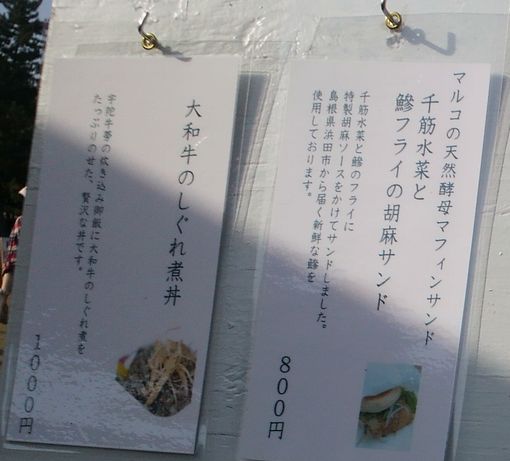 マルコの天然酵母マフィンサンド
千筋水菜と
鯵フライの胡麻サンド
千筋水菜と鯵のフライに
特製胡麻ソースをかけてサンドしました。
島根県浜田市から届く新鮮な鯵を
使用しております。
800円
大和牛のしぐれ煮丼
宇陀牛蒡の炊き込み御飯に大和牛のしぐれ煮を
たっぷりのせた、贅沢な丼です。
1000円